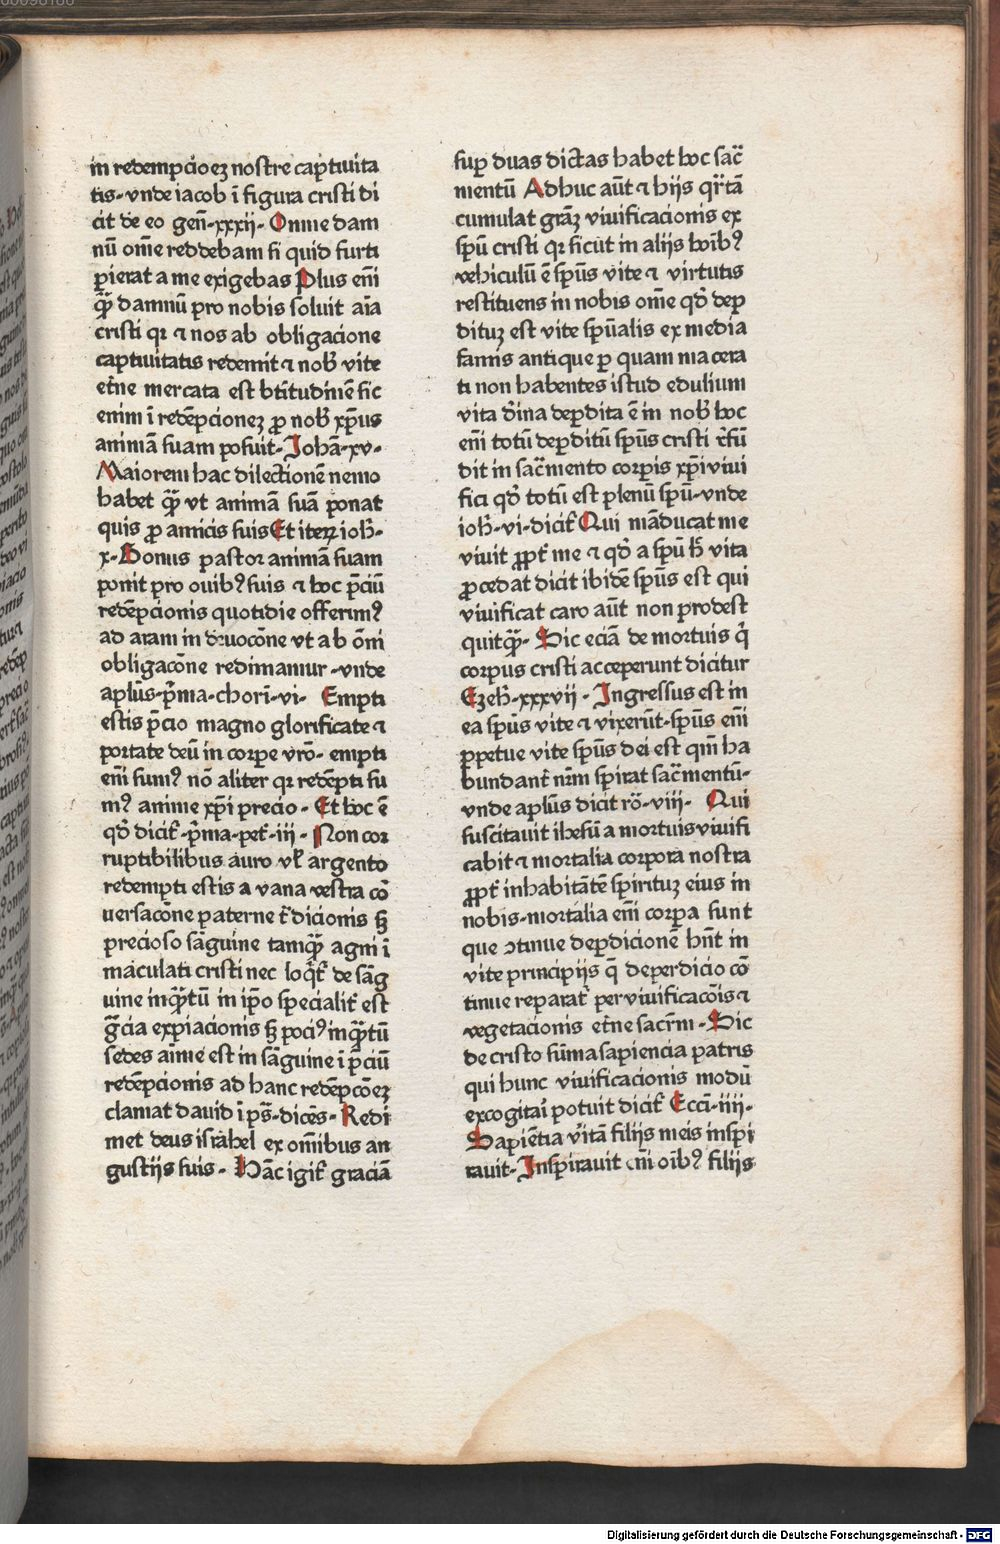 in redempcioeʒ nostre captiuita
tis-vnde iacob ī figura cristi di
cit de eo geñ-xxxij- Omne dam
nū om̄e reddebam si quid furti
ꝑierat a me exigebas Plus em̄
q̄ȝ damnū pro nobis soluit aīa
cristi qr ⁊ nos ab obligacione
captiuitatis redemit ⁊ nob̄ vite
et̄ne mercata est btītudinē sic
enim ī redēpcioneȝ ꝓ nob̄ xp̄us
animā suam posuit- Johā-xv-
Maiorem hac dilectionē nemo
habet q̄ȝ vt animā suā ponat
quis ꝓ amicis suis Et iterȝ ioh̄-
x- Bonus pastor animā suam
ponit pro ouibꝰ suis ⁊ hoc p̄ciū
redēpcionis quotidie offerimꝰ
ad aram in deuocōne vt ab om̄i
obligacōne redimamur -vnde
aplūs-p̄ma-chorī-vi- Empti
estis p̄cio magno glorificate ⁊
portate deū in corpe vr̄o- empti
em̄ sumꝰ nō aliter qr redēpti su
mꝰ anime xp̄i precio- Et hoc ē
qd̄ dicit̄ -p̄ma-pet̄-iii- Non cor
ruptibilibus auro vl̄ argento
redempti estis a vana vestra cō
uersacōne paterne t̄dicionis sȝ
precioso sāguine tamq̄ȝ agni ī
maculati cristi nec loq̄t̄ de sāg
uine inq̄ȝtū in ip̄o specialit̄ est
gr̄cia expiacionis sȝ pociꝰ inq̄ȝtū
sedes aīme est in sāguine ī p̄ciū
redēpcionis ad hanc redēpcōeȝ
clamat dauid ī ps̄-dicēs- Redi
met deus israhel ex om̄ibus an
gustijs suis- Hāc igit̄ graciā
suꝑ duas dictas habet hoc sac̄
mentū Adhuc aūt ⁊ hijs qr̄tā
cumulat grāȝ viuificacionis ex
spū cristi qr sicut in alijs hoībꝰ
vehiculū ē spūs vite ⁊ virtutis
restituens in nobis om̄e qd̄ deꝑ
dituȝ est vite spūalis ex media
famis antique ꝑ quam macera
ti non habentes istud edulium
vita dīna deꝑdita ē in nob̄ hoc
em̄ totū deꝑditū spūs cristi r̄fū
dit in sac̄mento corpis xp̄i viui
fici qd̄ totū est plenū spū-vnde
ioh̄-vi-dicit̄ Qui māducat me
viuit ꝓpt̄ me ⁊ qd̄ a spū h̄ vita
ꝓcedat dicit ibidē spūs est qui
viuificat caro aūt non prodest
quitq̄ȝ- Sic eciā de mortuis q̄
corpus cristi acceperunt dicitur
Eȝeh̄-xxxvii- Ingressus est in
ea spūs vite ⁊ vixerūt-spūs em̄
ꝑpetue vite spūs dei est qm̄ ha
bundant̄ nr̄m spirat sac̄mentū-
vnde aplūs dicit rō-viii- Qui
suscitauit ihesū a mortuis viuifi
cabit ⁊ mortalia corpora nostra
ꝓpt̄ inhabitātē spirituȝ eius in
nobis-mortalia em̄ corpa sunt
que ↄtinue deꝑdicionē hn̄t in
vite principijs q̄ deperdicio cō
tinue reparat̄ per viuificacōis ⁊
vegetacionis et̄ne sacr̄m- Sic
de cristo sūma sapiencia patris
qui hunc viuificacionis modū
excogitaī potuit dicit̄ Eccī-iiii-
Sapiētia vītā filijs meis inspi
rauit- Inspirauit em̄ oībꝰ filijs
Digitalisierung gefördert durch die Deutsche Forschungsgemeinschaft - DFG